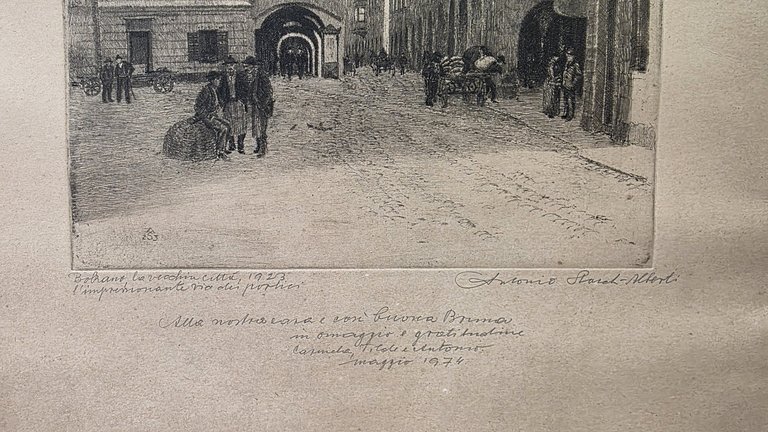 Bolzano la vecchia città, 1923
l'impressionante via dei portici
Antonio -Alberti
Alla nostra cara e così buona Bruna
in omaggio e gratitudine
Tilde e Antonio.
maggio 1974